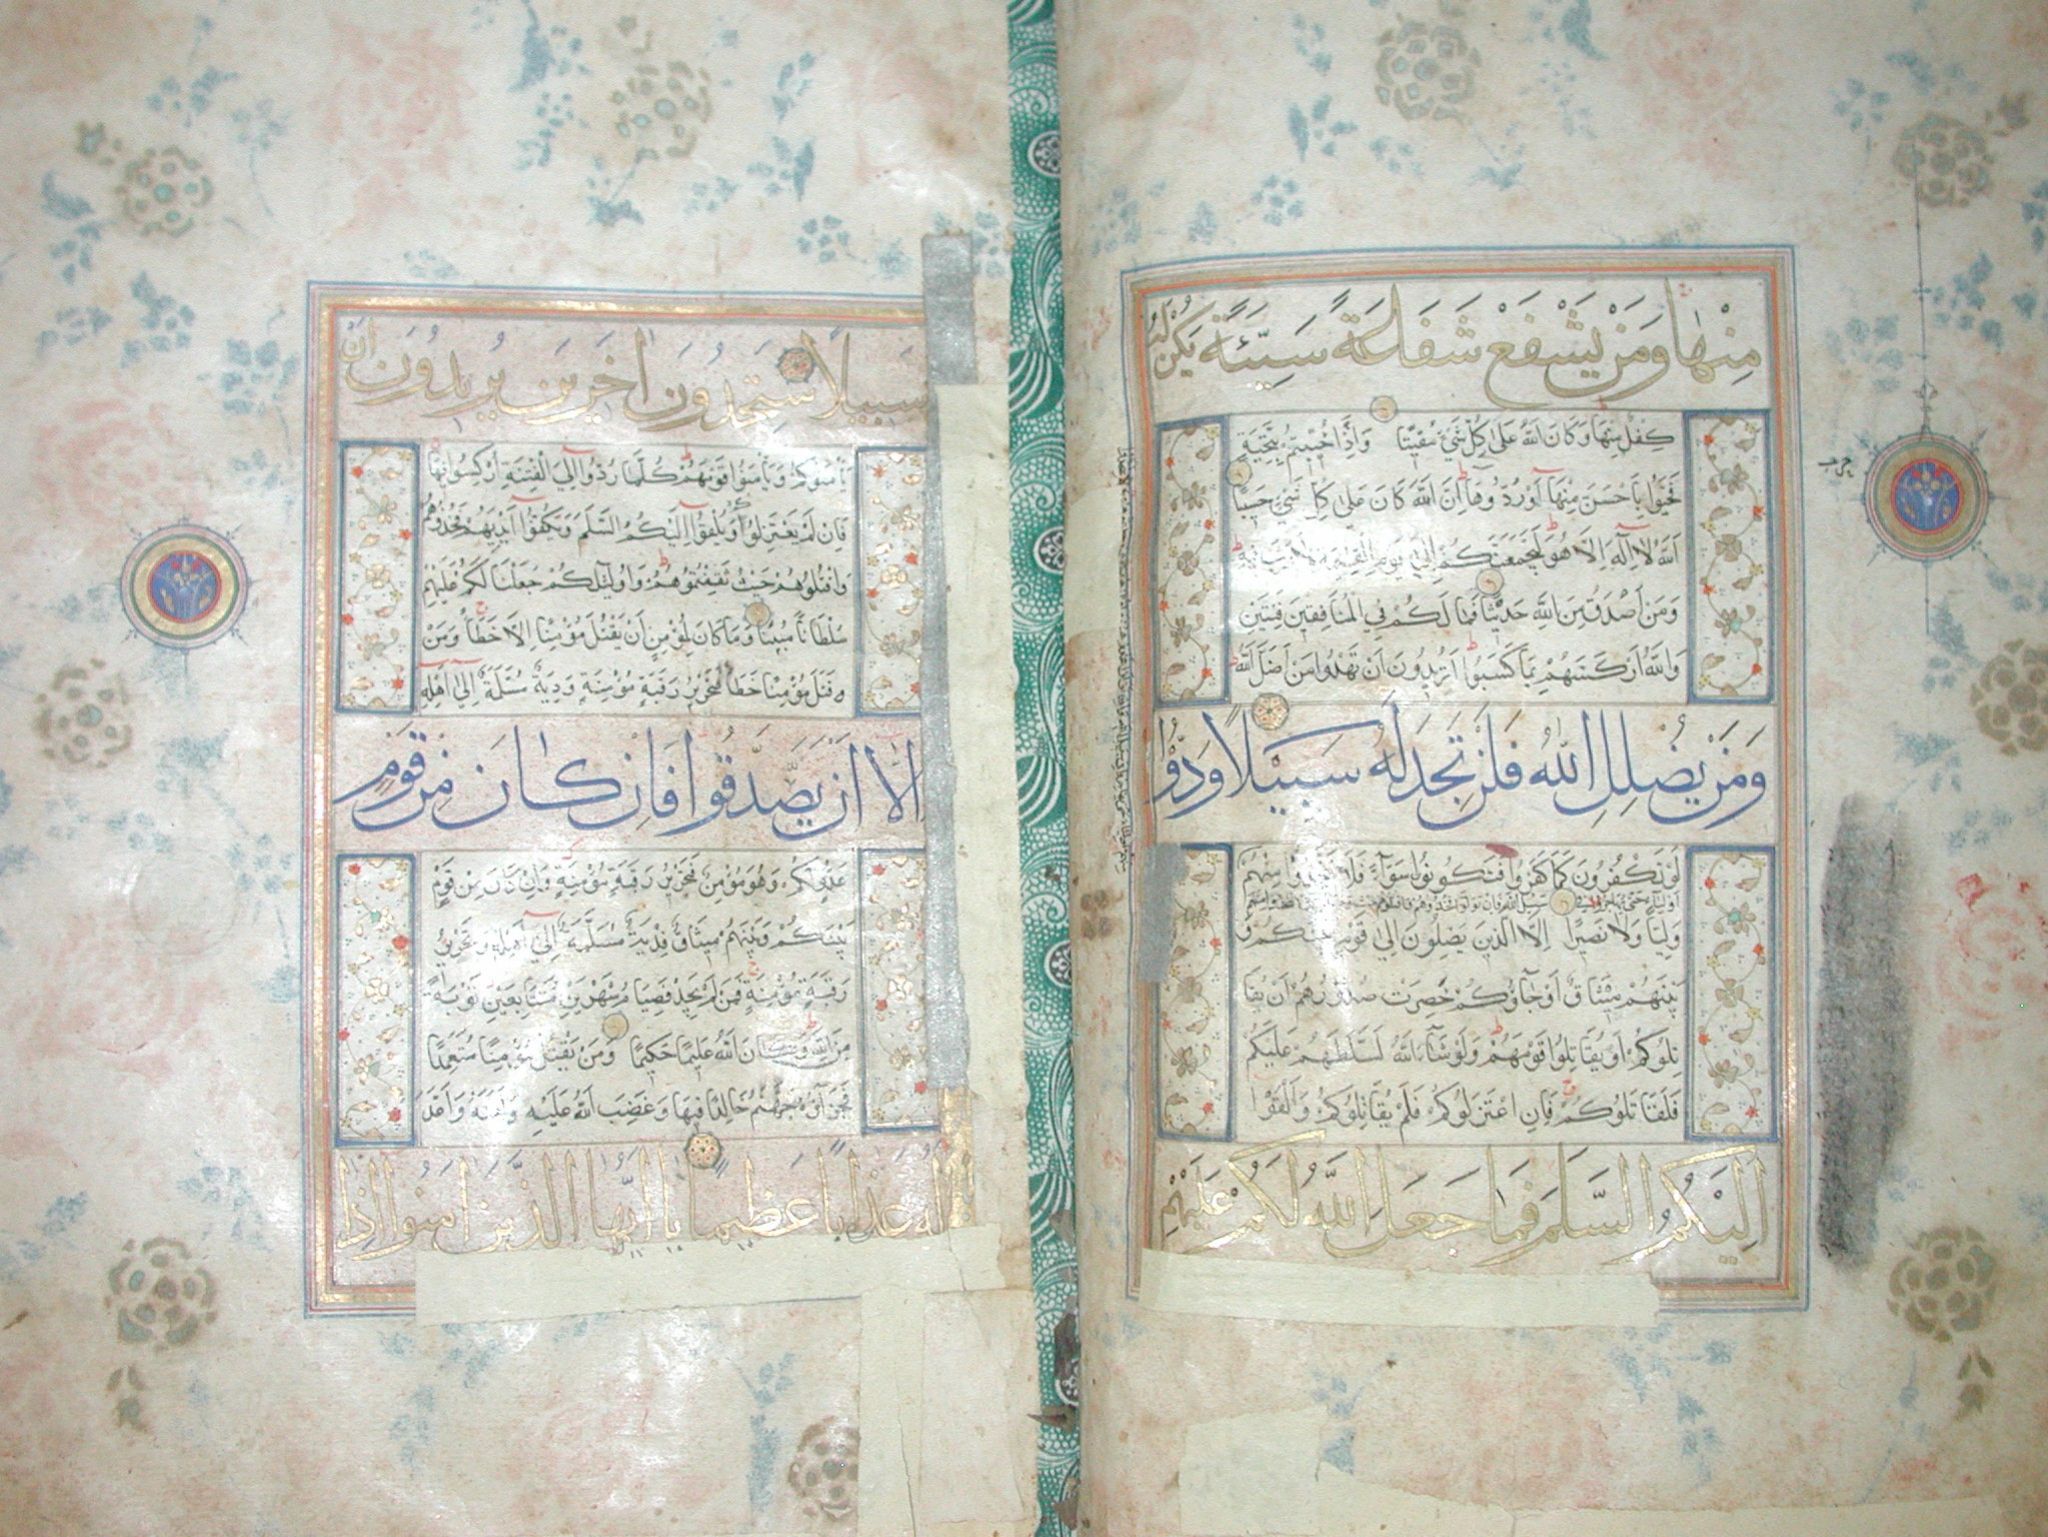 مِنْهَا وَمَنْ يَشْفَعْ شَفَاعَةً سَيِّئَةً يَكُنْ لَهُ
كفل منها وكان الله على كل شيء مقيتا واذا حييتم بتحية
فحيوا باحسن منها او ردوها ان الله كان على كل شيء حسيبا
الله لا اله الا هو ليجمعنكم الى يوم القيمة لا ريب فيه
ومن اصدق من الله حديثا فما لكم في المنافقين فئتين
والله اركسهم بما كسبوا اتريدون ان تهدوا من اضل الله
وَمَنْ يُضْلِلِ اللهُ فَلَنْ تَجِدَ لَهُ سَبِيلًا وَدُّوا
لو تكفرون كما كفروا فتكونون سواء فلا تتخذوا منهم
اولياء حتى يهاجروا في سبيل الله فان تولوا فخذوهم
وليا ولا نصيرا الا الذين يصلون الى قوم بينكم و
بينهم ميثاق او جاؤكم حصرت صدورهم ان يقا
تلوكم او يقاتلوا قومهم ولو شاء الله لسلطهم عليكم
فلقاتلوكم فان اعتزلوكم فلم يقاتلوكم والقوا
اِلَيْكُمُ السَّلَمَ فَمَا جَعَلَ اللهُ لَكُمْ عَلَيْهِمْ
حزب
سبيلا ستجدون اخرين يريدون ان
يأمنوكم ويأمنوا قومهم كلما ردوا الى الفتنة اركسوا فيها
فان لم يعتزلوكم ويلقوا اليكم السلم ويكفوا ايديهم فخذوهم
واقتلوهم حيث ثقفتموهم واوليئكم جعلنا لكم عليهم
سلطانا مبينا وما كان لمؤمن ان يقتل مؤمنا الا خطأ ومن
قتل مؤمنا خطأ فتحرير رقبة مؤمنة ودية مسلمة الى اهله
اِلَّا اَنْ يَصَّدَّقُوا فَاِنْ كَانَ مِنْ قَوْمٍ
عدو لكم وهو مؤمن فتحرير رقبة مؤمنة وان كان من قوم
بينكم وبينهم ميثاق فدية مسلمة الى اهله وتحرير
رقبة مؤمنة فمن لم يجد فصيام شهرين متتابعين توبة
من الله وكان الله عليما حكيما ومن يقتل مؤمنا متعمدا
فجزاؤه جهنم خالدا فيها وغضب الله عليه ولعنه واعد
له عذابا عظيما يا ايها الذين امنوا اذا